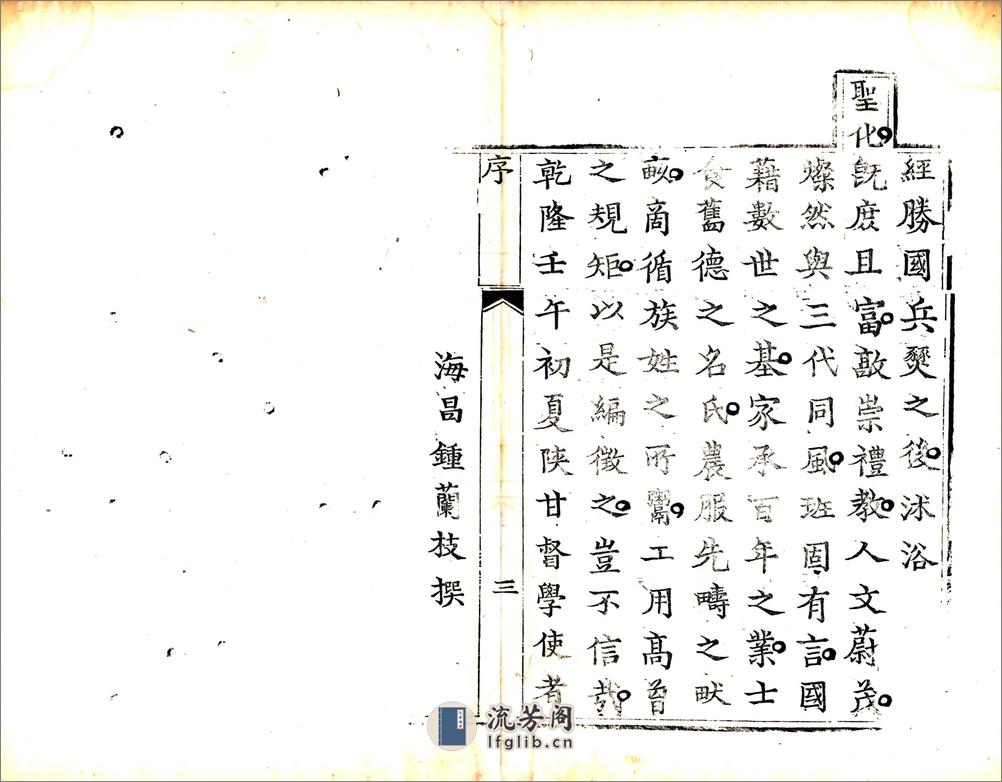 經勝國兵燹之後沐浴
聖化旣庶且富敦崇禮教人文蔚茂
燦然與三代同風班固有言國
藉數世之基家承百年之業士
食舊德之名氏農服先疇之畎
畝商循族姓之所鬻工用高曾
之規矩以是編徵之豈不信哉
乾隆壬午初夏陜甘督學使者
序 三
海昌鍾蘭枝撰
流芳阁
lfglib.cn